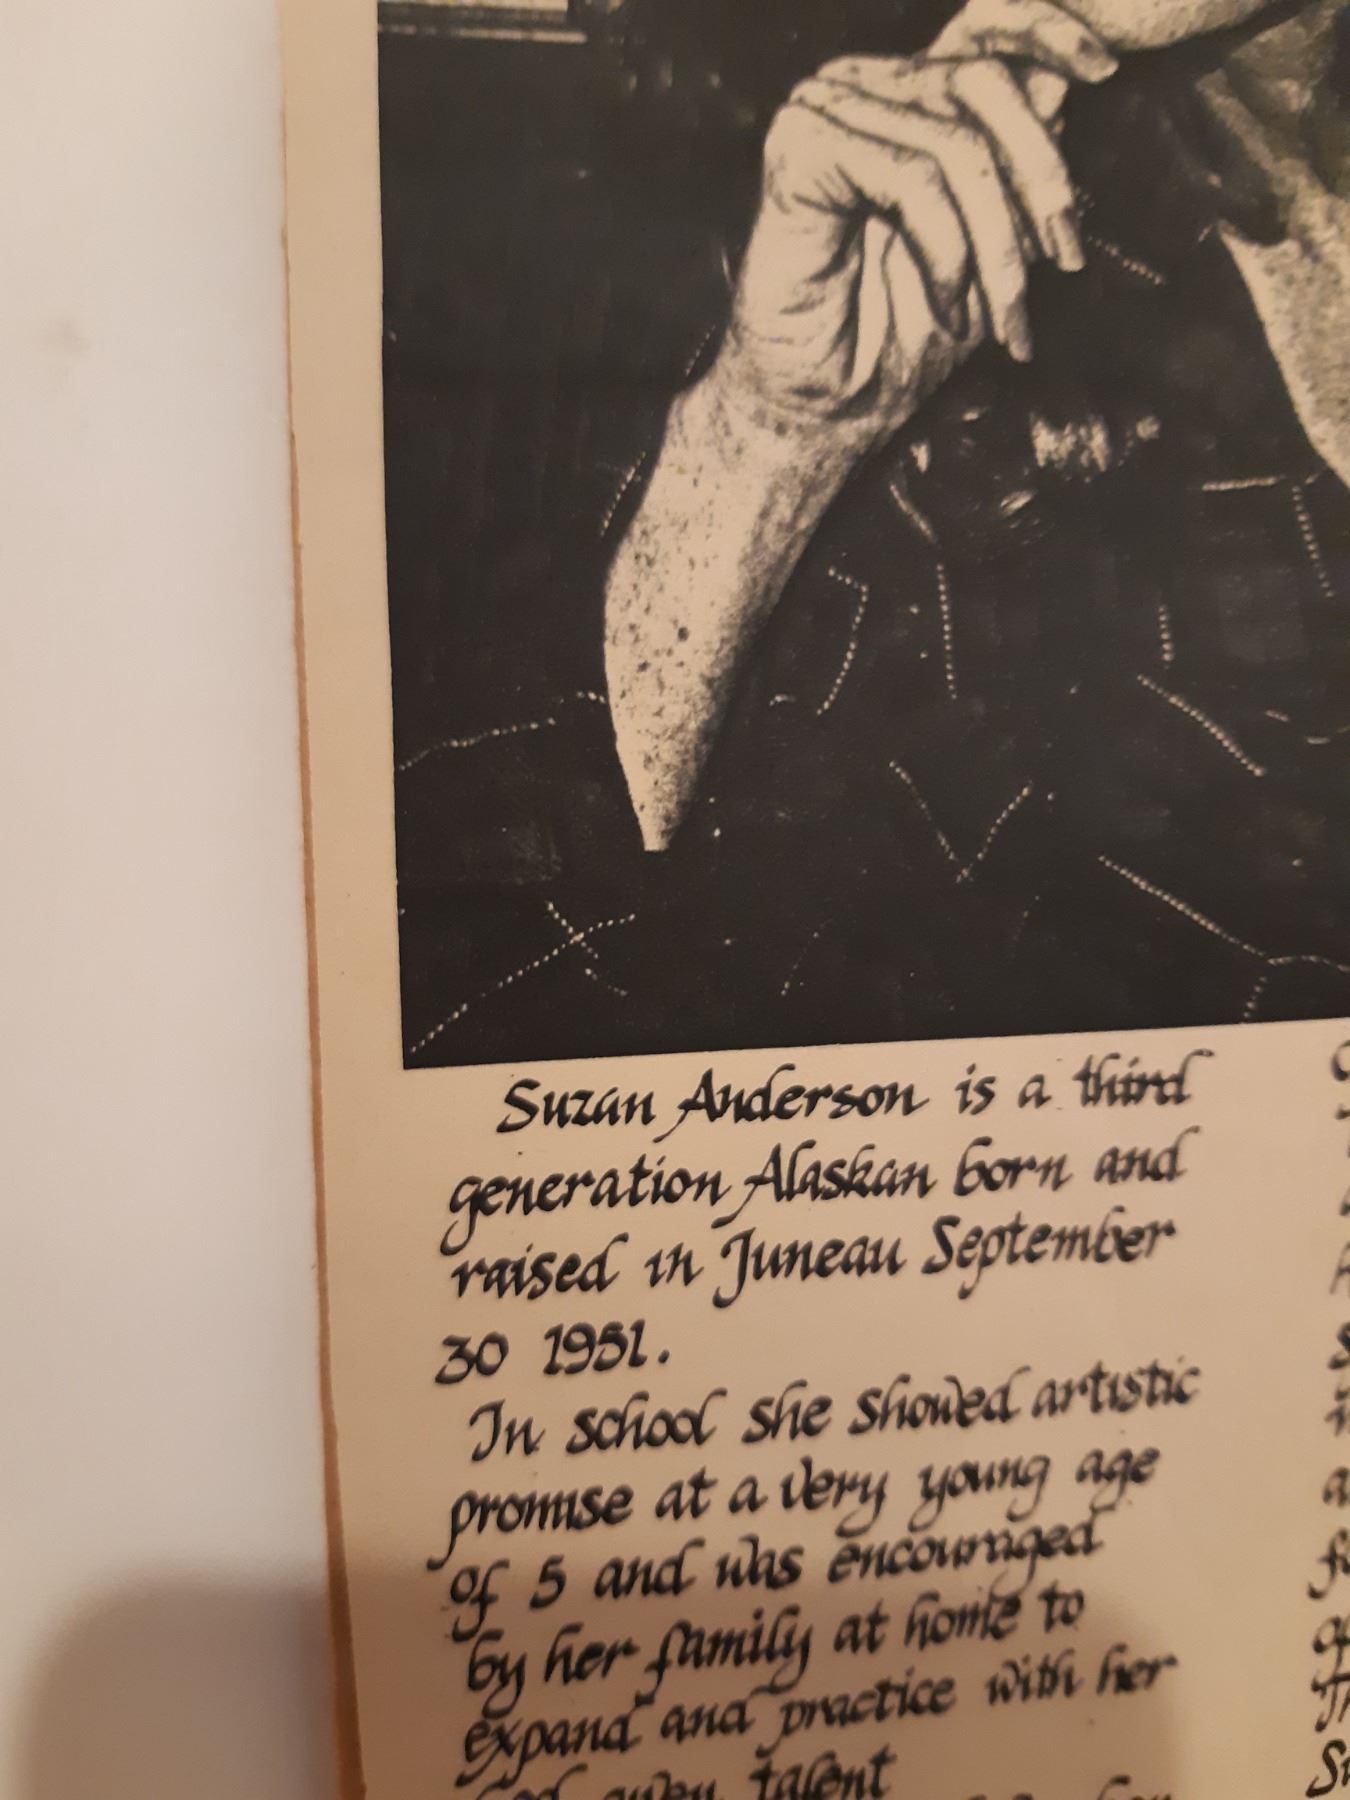 Suzan Anderson is a third
generation Alaskan born and
raised in Juneau September
30 1951.
In school she showed artistic
promise at a very young age
of 5 and was encouraged
by her family at home to
expand and practice with her
God given talent